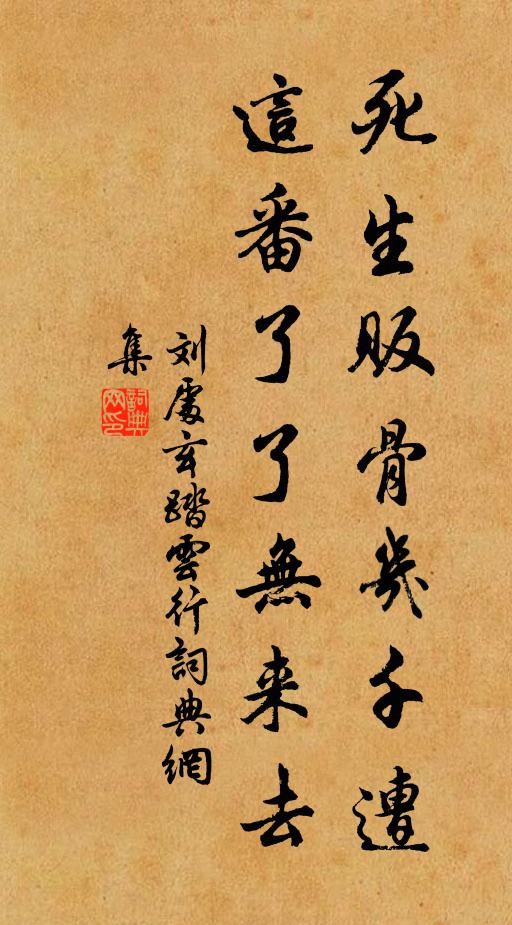 死生販骨幾千遭
這番了了無来去
刘處玄踏雲行詞典網
集
詞典網印